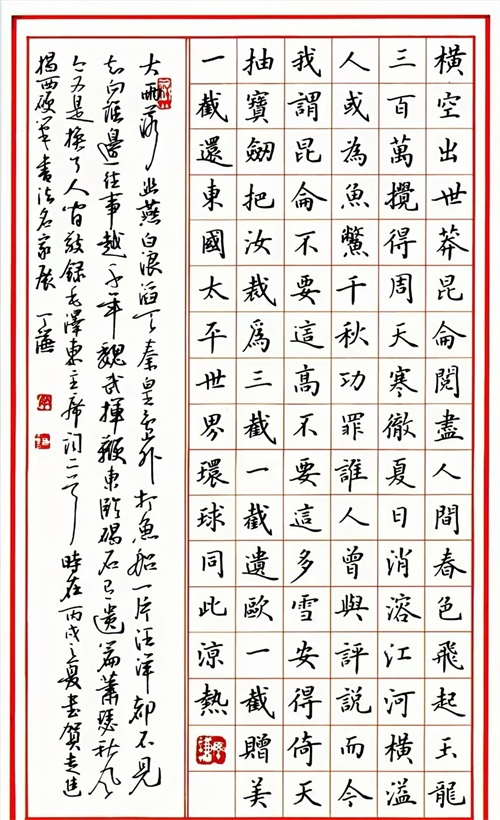 橫空出世莽昆侖閱盡人間春色飛起玉龍
三百萬攪得周天寒徹夏日消溶江河橫溢
人或為魚鱉千秋功罪誰人曾與評說而今
我謂昆侖不要這高不要這多雪安得倚天
抽寶劍把汝裁爲三截一截遺歐一截贈美
一截還東國太平世界環球同此涼熱
大雨落幽燕白浪滔天秦皇島外打魚船一片汪洋都不見
知向誰邊往事越千年魏武揮鞭東臨碣石有遺篇蕭瑟秋風
今又是換了人間敬錄毛澤東主席詞二首時在丙戌之夏書賀走進
揭西硬筆書法名家展 丁謙